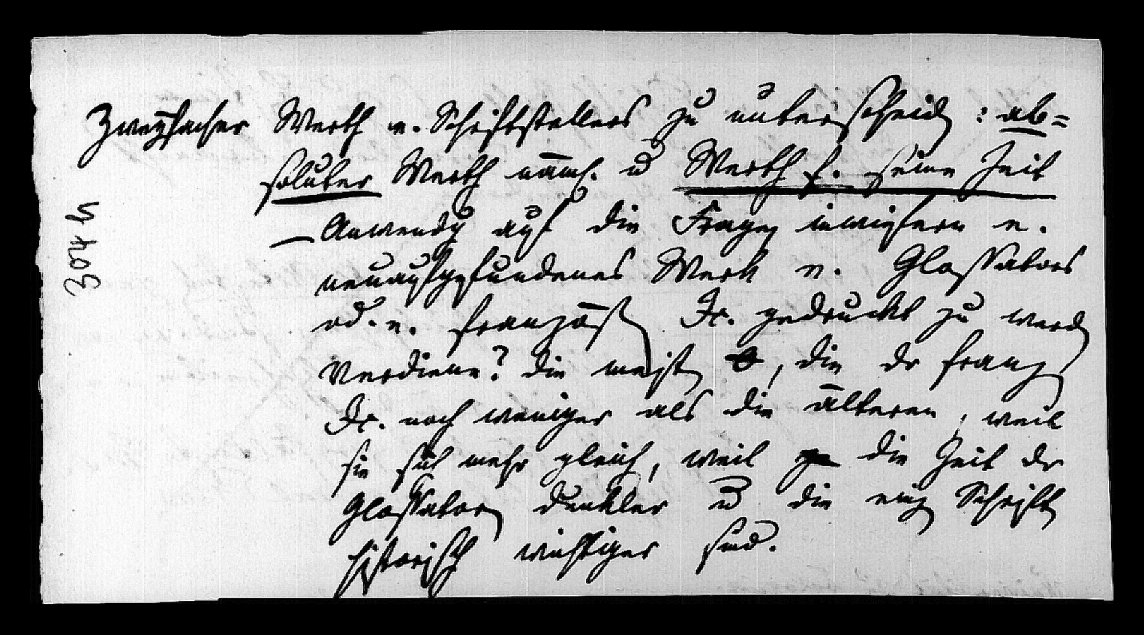 Zweyfacher Werth e. Schriftstellers zu unterscheid : ab=
soluter Werth näml. u Werth f. seine Zeit
— Anwendg auf die Frage, inwiefern e.
neuaufgefundenes Werk e. Glossators
od. e. französ. Jr. gedruckt zu werd
verdiene? die meist, die der franz
Jr. noch weniger als die älteren, weil
sie sich mehr gleich, weil die Zeit der
Glossatoren dunkler u die einz Schrift
historisch wichtiger sind.
304